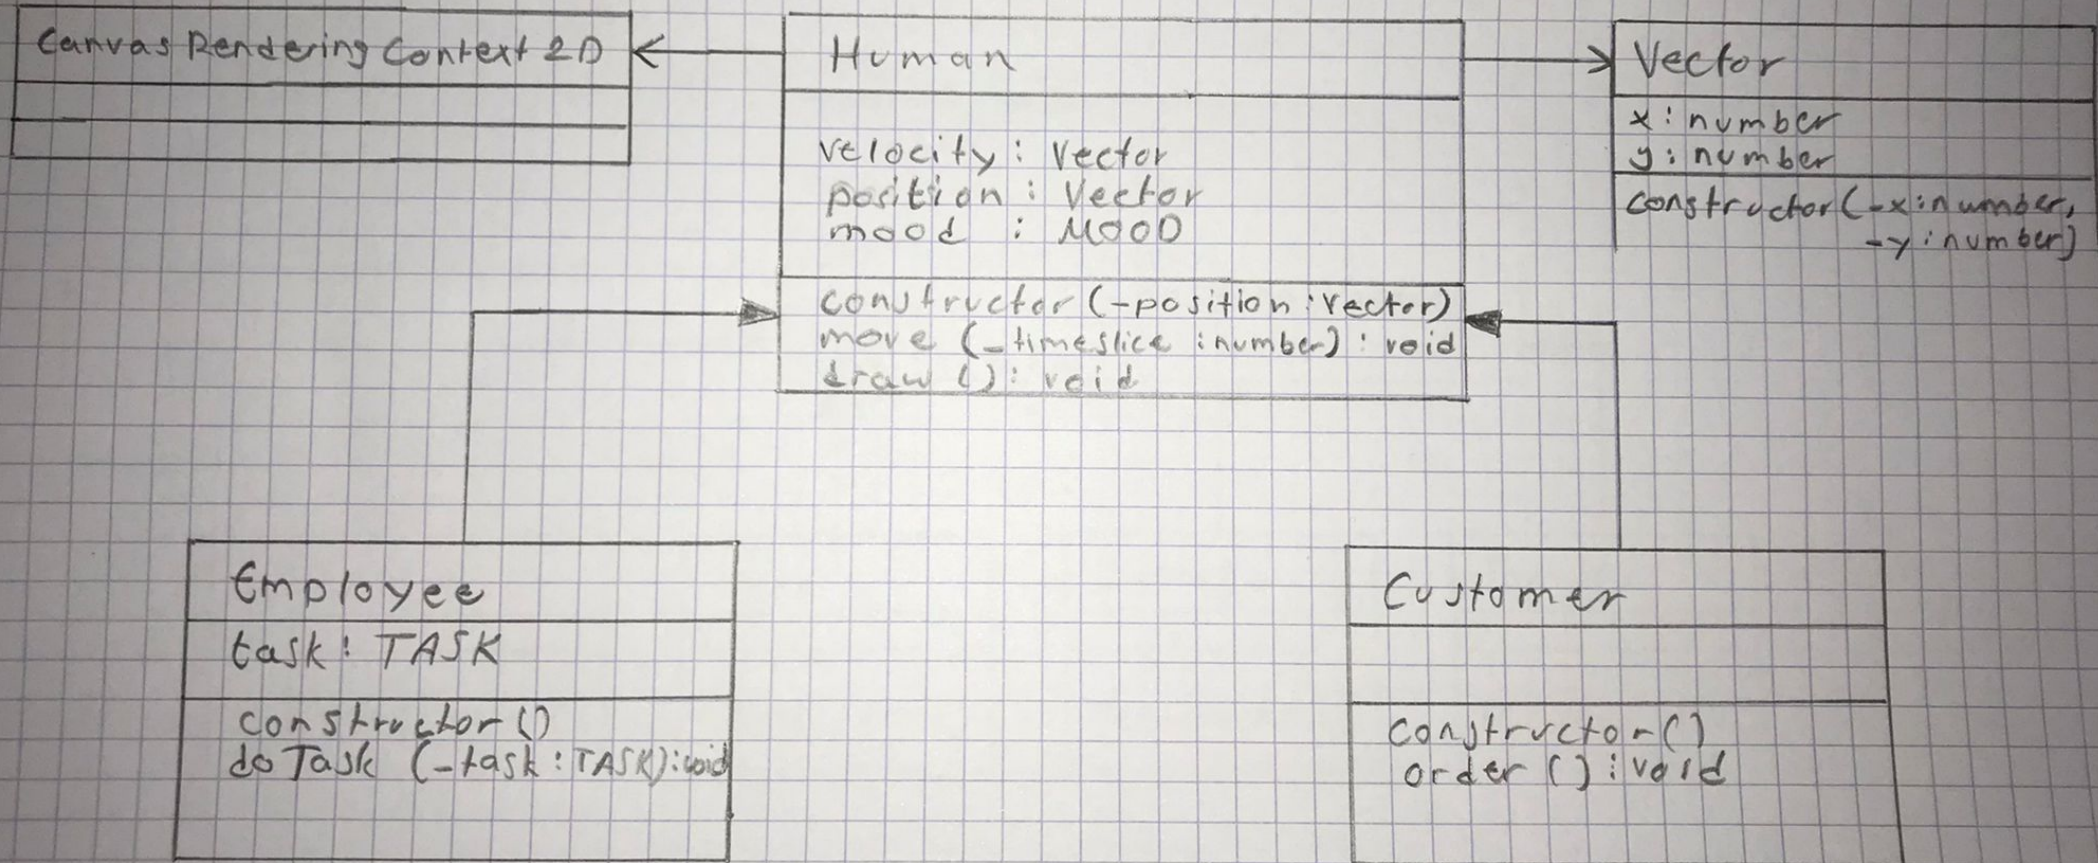 Canvas Rendering Context 2D
Human
velocity : Vector
position : Vector
mood : MOOD
constructor (_position : Vector)
move (_timeslice : number) : void
draw () : void
Vector
x : number
y : number
constructor (_x : number,
_y : number)
Employee
task : TASK
constructor ()
doTask (_task : TASK) : void
Customer
constructor ()
order () : void